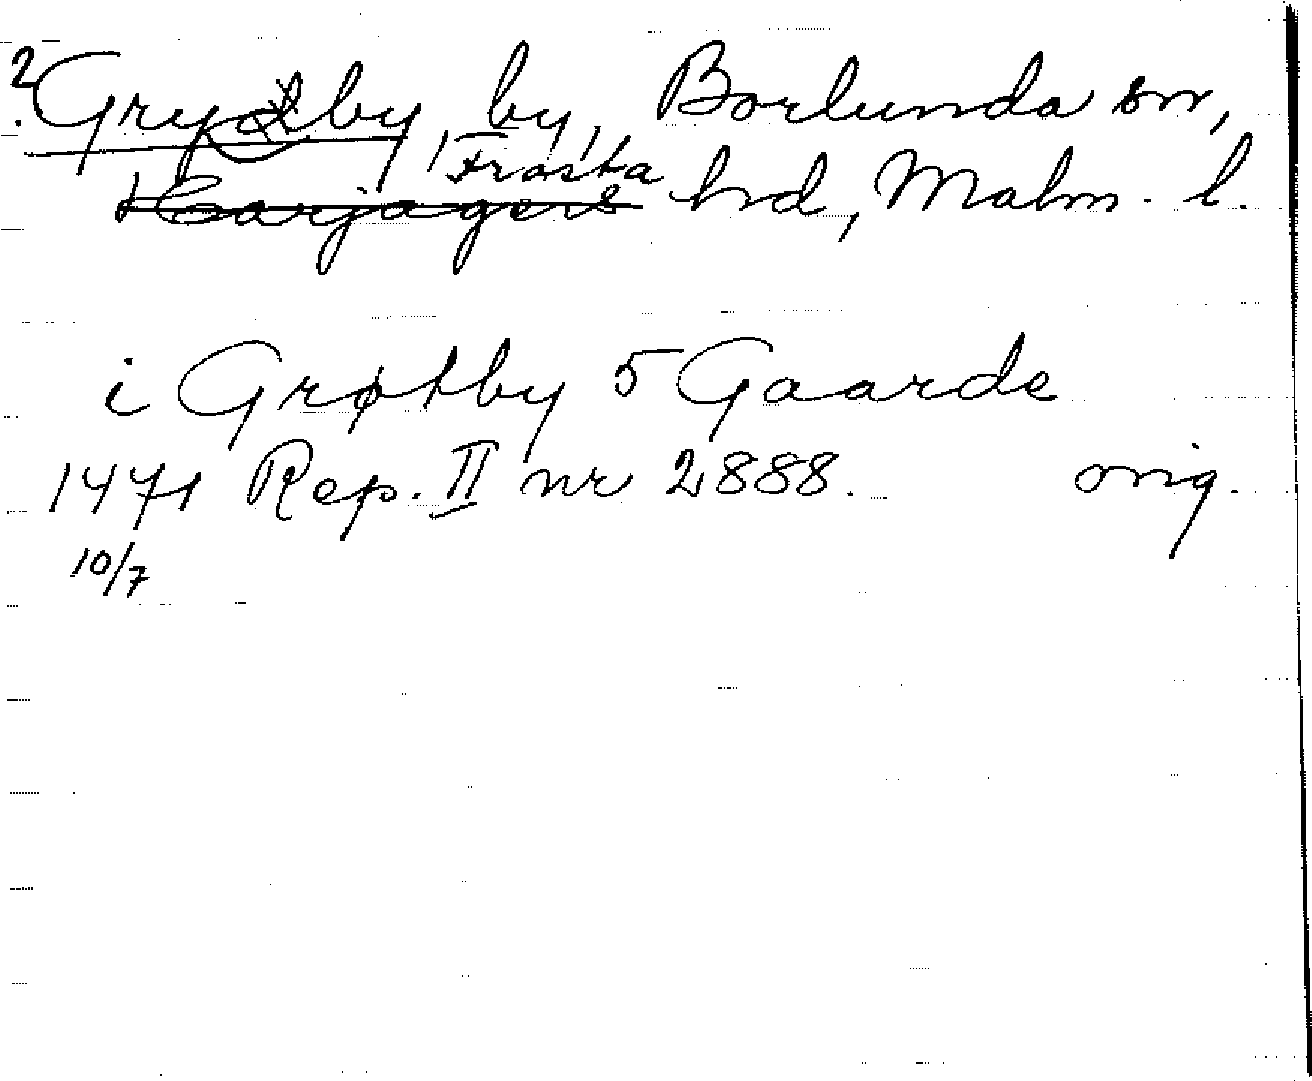 ? Gryby, by, Borlunda sn,
Frosta
Harjagers hd, Malm. l.
i Grøtby 5 Gaarde
1471 Rep. II nr 2888. orig.
10/7